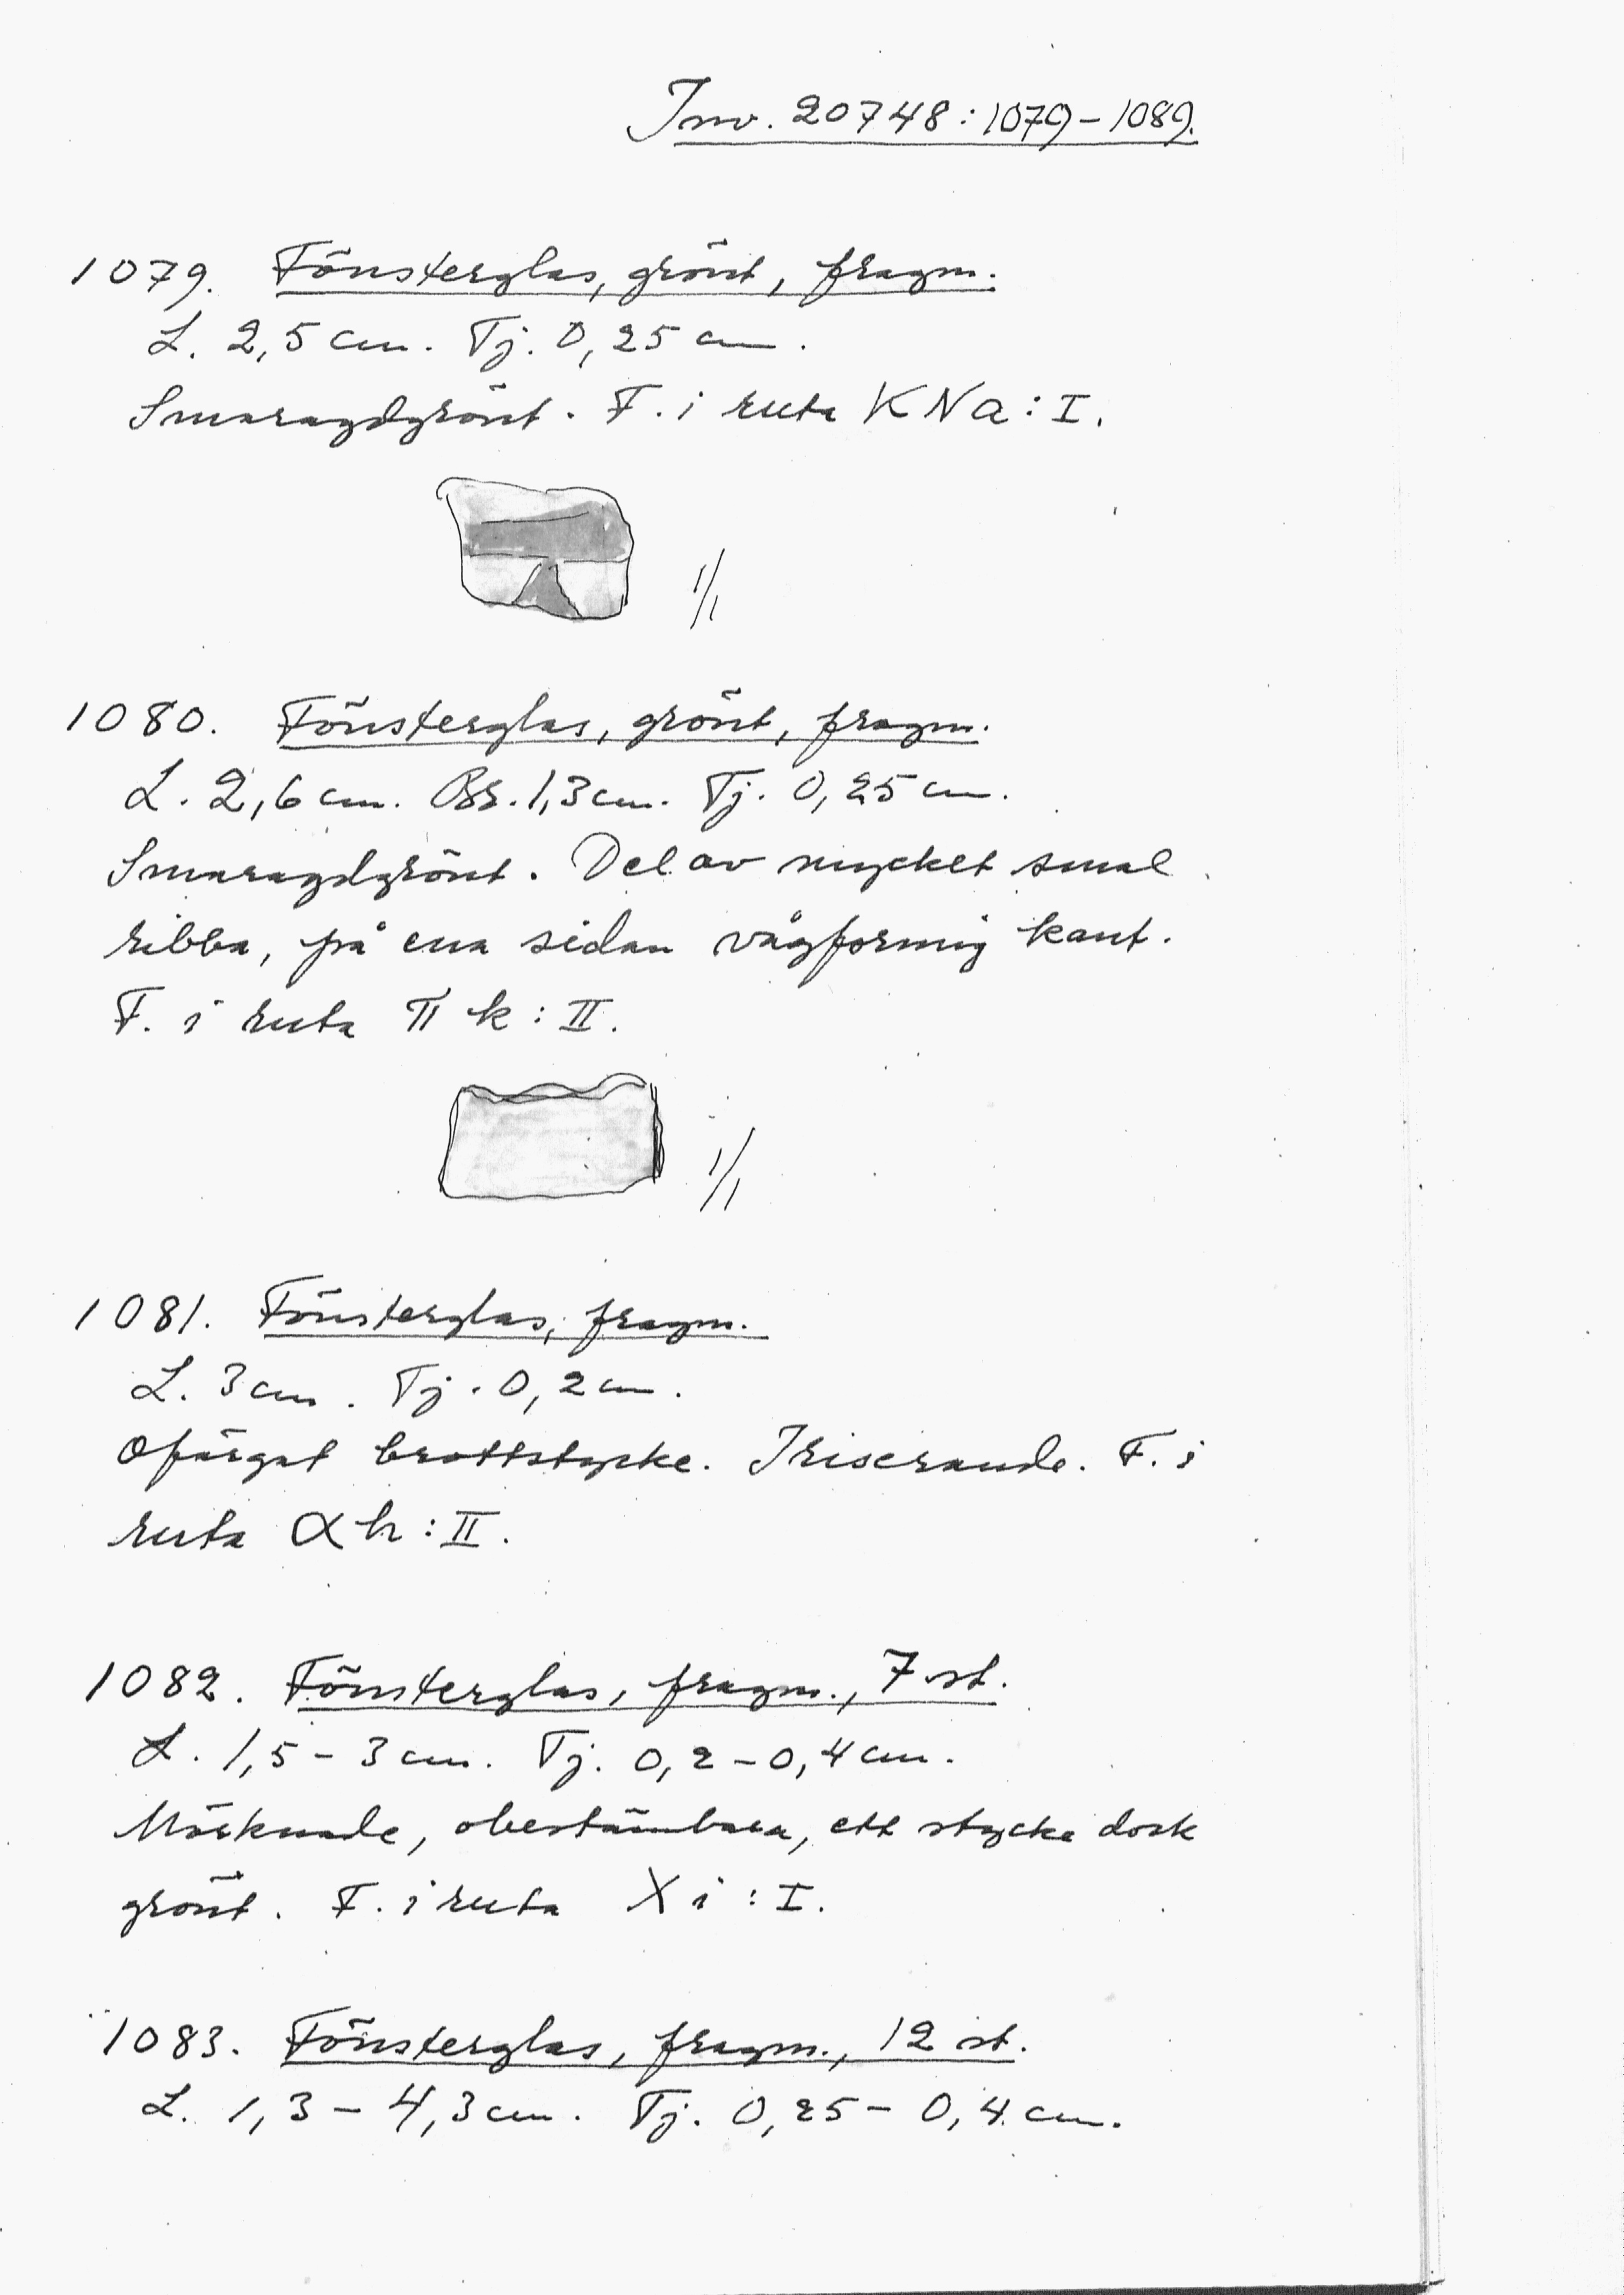 Inv. 20748:1079-1089.
1079. Fönsterglas, grönt, fragm.
L. 2,5 cm. Tj. 0,25 cm.
Smaragdgrönt. F. i ruta KNa:I.
1/1
1080. Fönsterglas, grönt, fragm.
L. 2,6 cm. Br. 1,3 cm. Tj. 0,25 cm.
Smaragdgrönt. Del av mycket smal
ribba, på ena sidan vågformig kant.
F. i ruta π k:II.
1/1
1081. Fönsterglas, fragm.
L. 3 cm. Tj. 0,2 cm.
Ofärgat brottstycke. Iriserande. F. i
ruta αh:II.
1082. Fönsterglas, fragm., 7 st.
L. 1,5-3 cm. Tj. 0,2-0,4 cm.
Mörknade, obestämbara, ett stycke dock
grönt. F. i ruta X i:I.
1083. Fönsterglas, fragm., 12 st.
L. 1,3-4,3 cm. Tj. 0,25-0,4 cm.